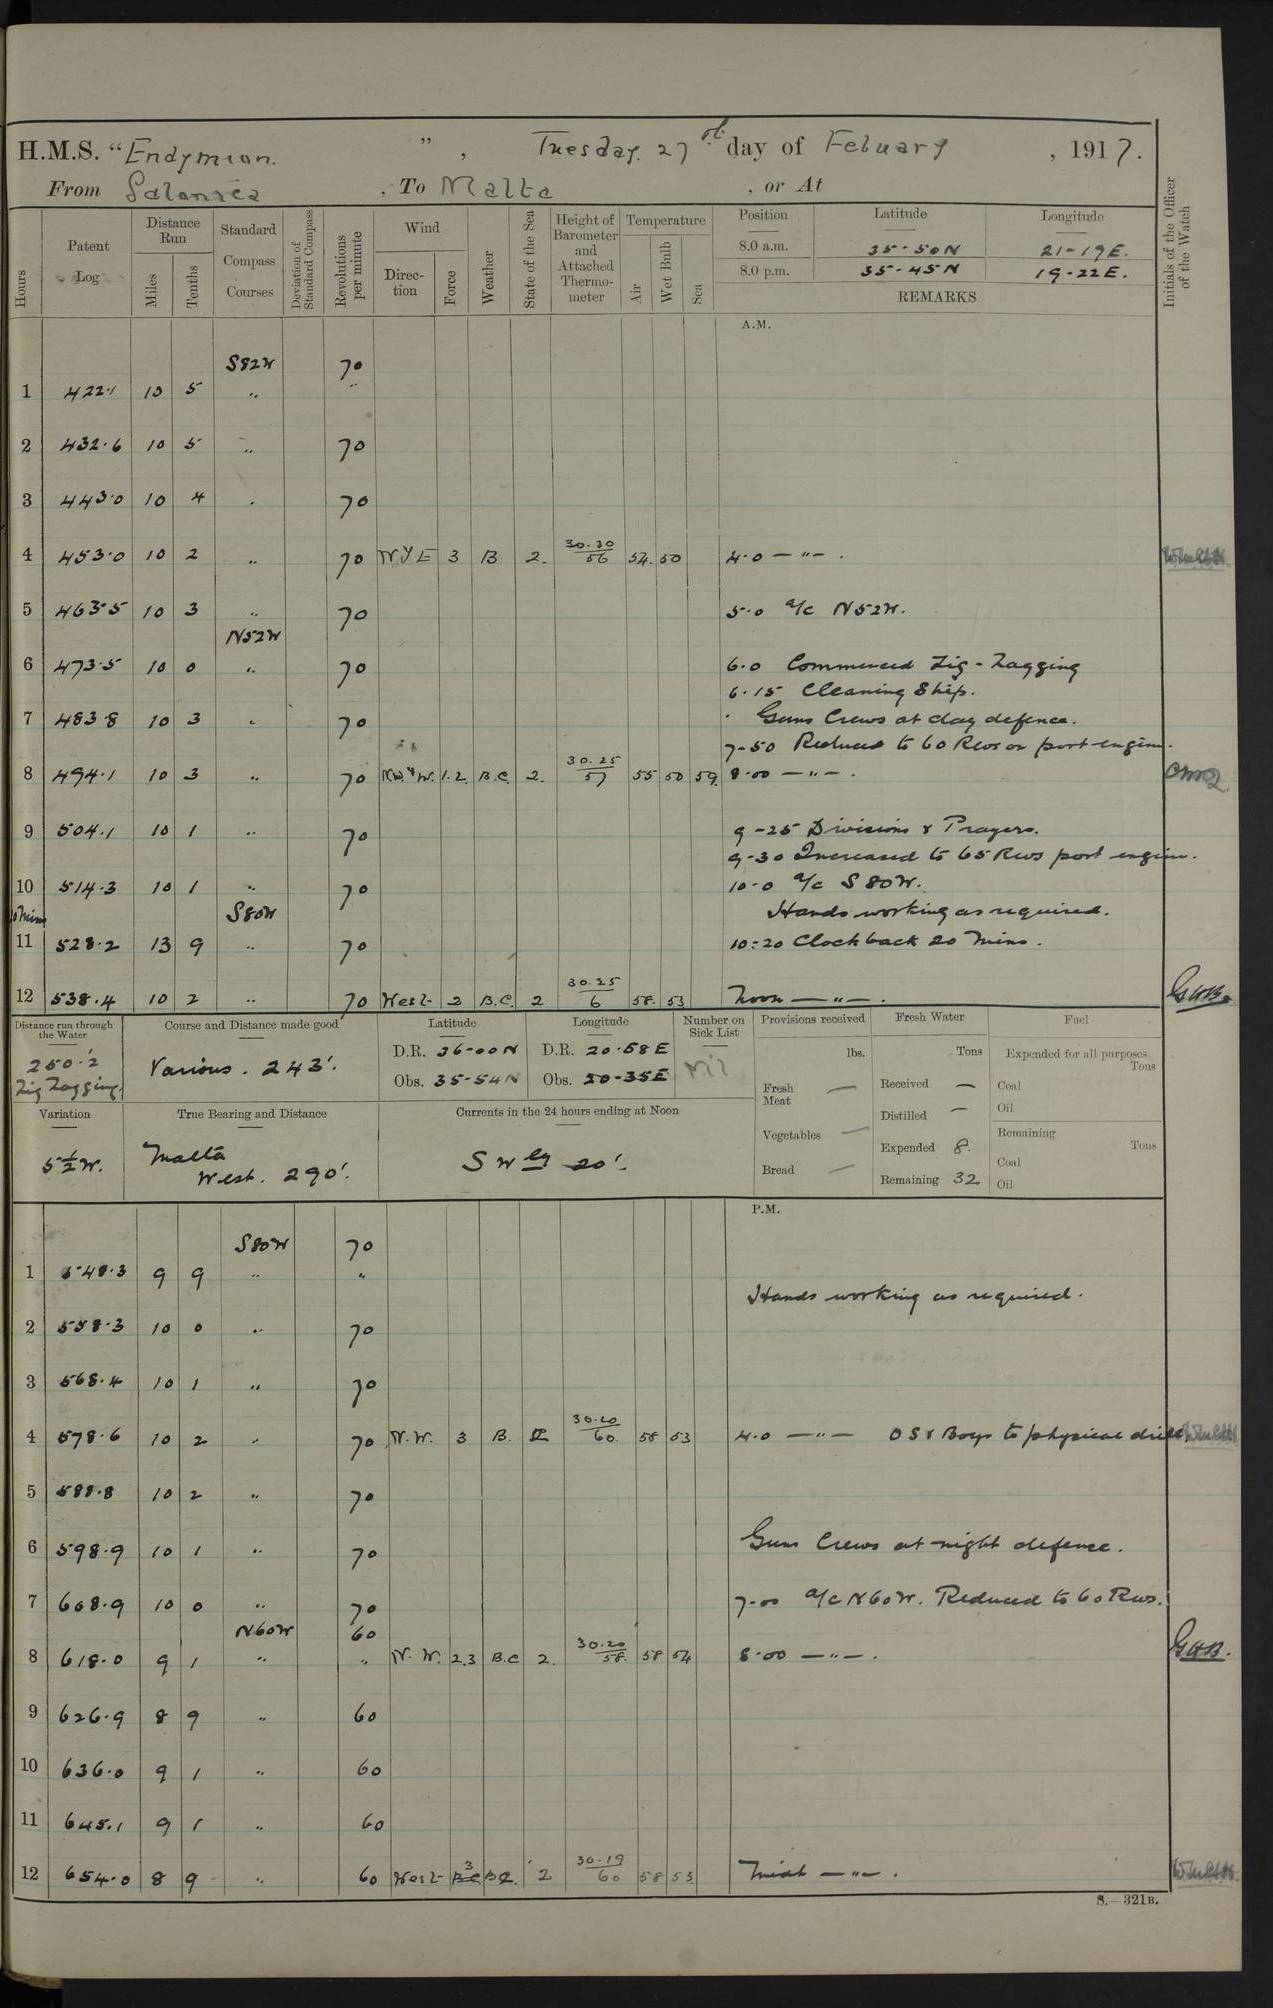 H.M.S. "Endymion. ", Tuesday. 27th day of Febuary, 1917.
From Salonica, To Malta, or At
Hours
Patent Log
Distance Run
Miles
Tenths
Standard Compass Courses
Deviation of Standard Compass
Revolutions per minute
Wind
Direction
Force
Weather
State of the Sea
Height of Barometer and Attached Thermometer
Temperature
Air
Wet Bulb
Sea
Position Latitude Longitude
8.0 a.m. 35-50N 21-19E.
8.0 p.m. 35-45N 19-22E.
REMARKS
Initials of the Officer of the Watch
A.M.
S82W 70
1 422.1 10 5 " "
2 432.6 10 5 " 70
3 443.0 10 4 " 70
4 453.0 10 2 " 70 NYE 3 B 2. 30.30/56 54. 50 4.0 — " — .
5 463.5 10 3 " 70 5.0 a/c N52W.
N52W
6 473.5 10 0 " 70 6.0 Commenced Zig-Zagging
6.15 Cleaning Ship.
7 483.8 10 3 " 70 Guns Crews at day defence.
7-50 Reduced to 60 Revs on port engine.
8 494.1 10 3 " 70 NW.yW. 1.2. B.C. 2. 30.25/57 55 50 59. 8.00 — " — .
9 504.1 10 1 " 70 9-25 Divisions & Prayers.
9-30 Increased to 65 Revs port engine.
10 514.3 10 1 " 70 10-0 a/c S80W.
S80W Hands working as required.
11 528.2 13 9 " 70 10:20 Clock back 20 Mins.
12 538.4 10 2 " 70 West 2 B.C. 2 30.25/6 58. 53 Noon — " — . GHB.
Distance run through the Water
250'.2
Zig Zagging.
Course and Distance made good
Various. 243'.
Latitude
D.R. 36-00N
Obs. 35-54N
Longitude
D.R. 20-58E
Obs. 20-35E
Number on Sick List
Nil
Provisions received
lbs.
Fresh Meat —
Vegetables —
Bread —
Fresh Water
Tons
Received —
Distilled —
Expended 8.
Remaining 32
Fuel
Expended for all purposes
Tons
Coal
Oil
Remaining
Tons
Coal
Oil
Variation
5½W.
True Bearing and Distance
Malta
West. 290'.
Currents in the 24 hours ending at Noon
SWly 20'.
P.M.
S80W 70
1 548.3 9 9 " "
Hands working as required.
2 558.3 10 0 " 70
3 568.4 10 1 " 70
4 578.6 10 2 " 70 N.W. 3 B. 2 30.20/60. 58 53 4.0 — " — OS & Boys to physical drill.
5 588.8 10 2 " 70
6 598.9 10 1 " 70 Guns Crews at night defence.
7 608.9 10 0 " 70 7.00 a/c N60W. Reduced to 60 Revs.
N60W 60
8 618.0 9 1 " " N.W. 2.3 B.C 2. 30.20/58. 58 54 8.00 — " — . GHB.
9 626.9 8 9 " 60
10 636.0 9 1 " 60
11 645.1 9 1 " 60
12 654.0 8 9 " 60 West 3 BC 2 30.19/60 58 53 Midt — " — .
S.—321B.